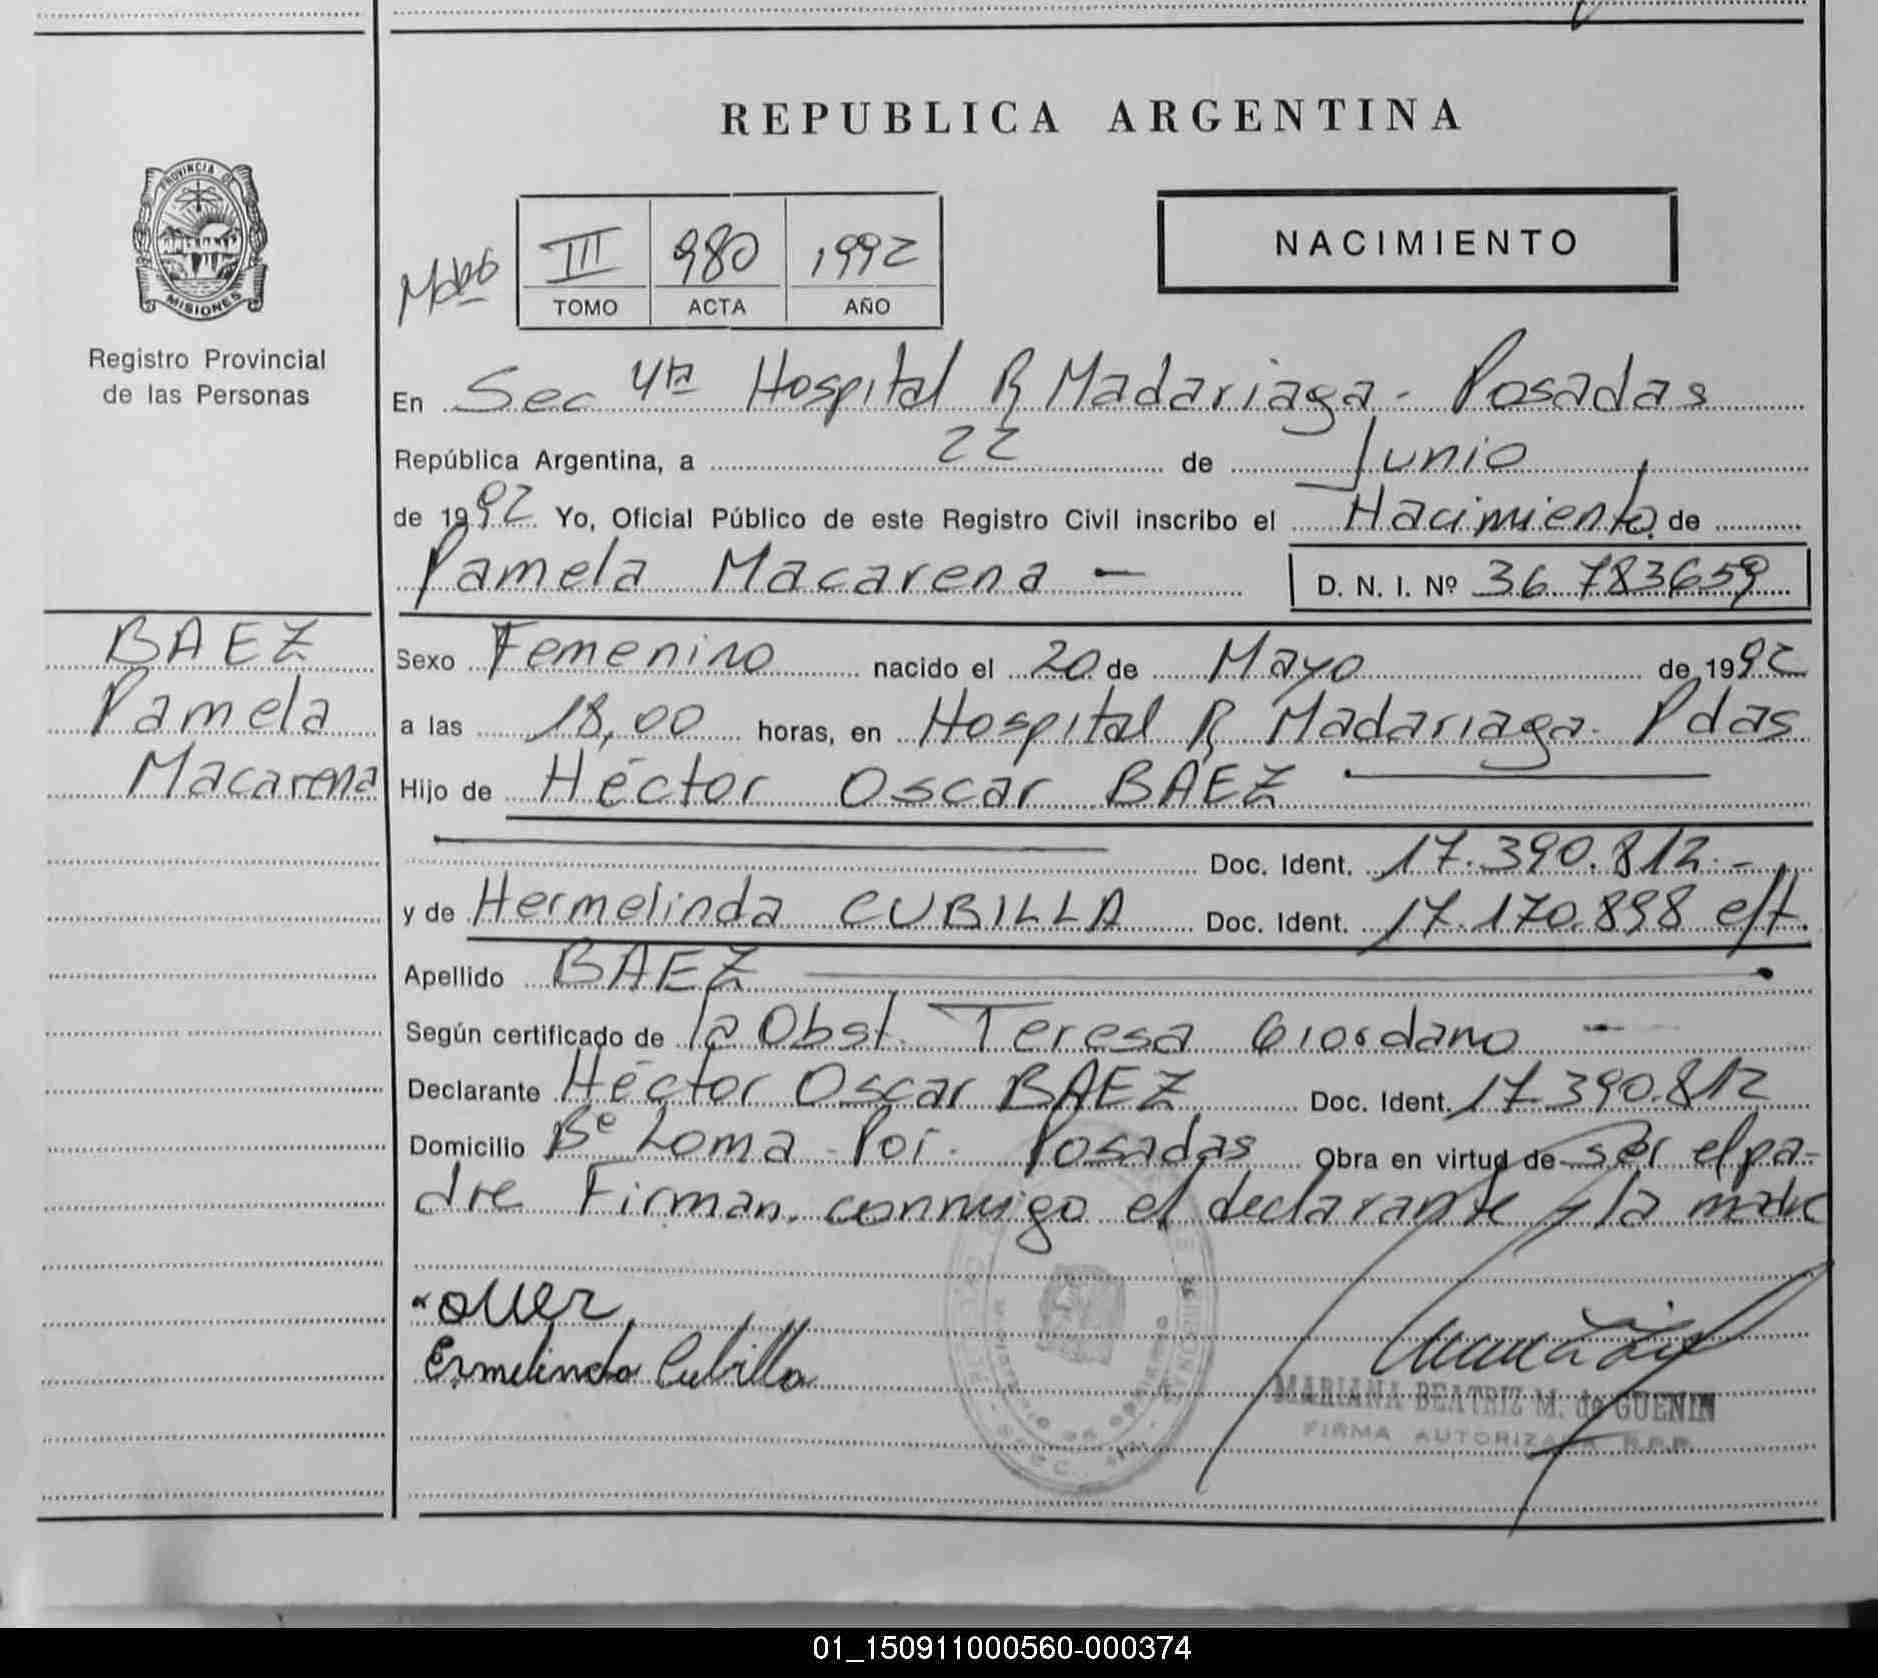 REPUBLICA ARGENTINA
PROVINCIA DE
MISIONES
Registro Provincial
de las Personas
III 980 1992
TOMO ACTA AÑO
NACIMIENTO
En Sec 4ta Hospital R Madariaga - Posadas
República Argentina, a 22 de Junio
de 1992 Yo, Oficial Público de este Registro Civil inscribo el Nacimiento de
Pamela Macarena — D. N. I. Nº 36.783659
BAEZ
Pamela
Macarena
Sexo Femenino nacido el 20 de Mayo de 1992
a las 18,00 horas, en Hospital R Madariaga - Pdas
Hijo de Héctor Oscar BAEZ
Doc. Ident. 17.390.812.-
y de Hermelinda CUBILLA Doc. Ident. 17.170.898 e/t.
Apellido BAEZ
Según certificado de la Obst. Teresa Giordano -
Declarante Héctor Oscar BAEZ Doc. Ident. 17.390.812
Domicilio Bº Loma Poi - Posadas Obra en virtud de ser el pa-
dre Firman conmigo el declarante y la madre
Ermelinda Cubilla
MARIANA BEATRIZ M. de GUENIN
FIRMA AUTORIZADA R.P.P.
01_150911000560-000374